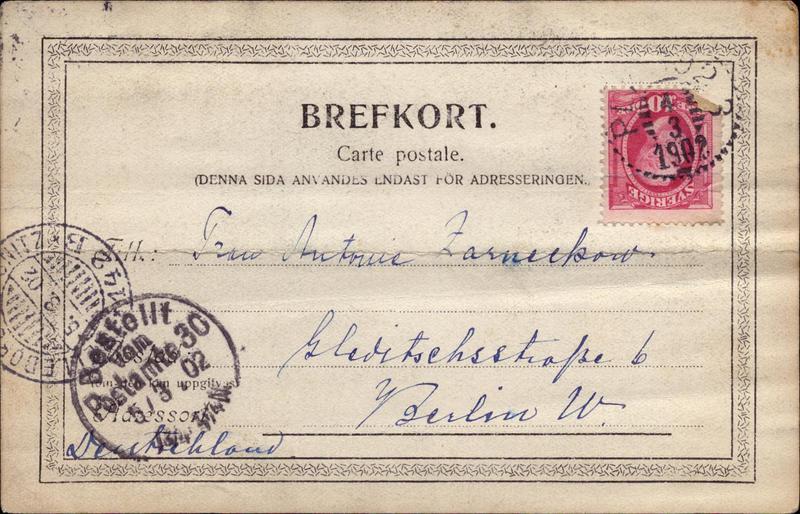 BREFKORT.
Carte postale.
(DENNA SIDA ANVÄNDES ENDAST FÖR ADRESSERINGEN.)
10
SVERIGE
4
3
1902
Till: Frau Antonie Zarneckow
Gleditschstraße 6
Berlin W.
Adressort
Deutschland
Bestellt
vom
Postamte 30
5/3 02